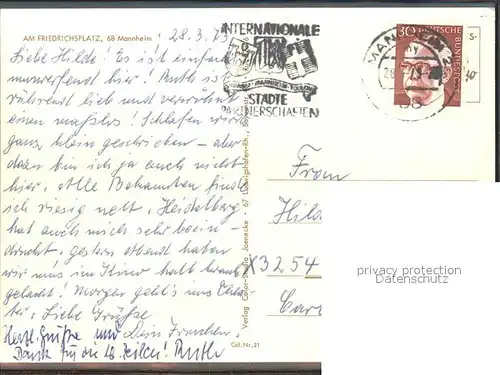 AM FRIEDRICHSPLATZ, 68 Mannheim
28.3.73
Liebe Hilde! Es ist einfach
umwerfend hier! Ruth ist
rührend lieb und verwöhnt
einen maßlos! Schlafen wird
ganz klein geschrieben - aber
dazu bin ich ja auch nicht
hier. Alle Bekannten finde
ich riesig nett, Heidelberg
hat auch mich sehr beein-
druckt, gestern abend haben
wir uns im Kino halb krank
gelacht! Morgen geht's ins Thea-
ter. Liebe Grüße
Dein
Herzl. Grüße und
Dank für die lb. Zeilen! Ruth
Verlag Color-Studio Jaenecke - 67 Ludwigshafen-Rh.
Col. Nr. 21
INTERNATIONALE
STÄDTE
PARTNERSCHAFTEN
MANNHEIM
30 DEUTSCHE BUNDESPOST
S-
Frau
Hild
X3254
privacy protection
Datenschutz